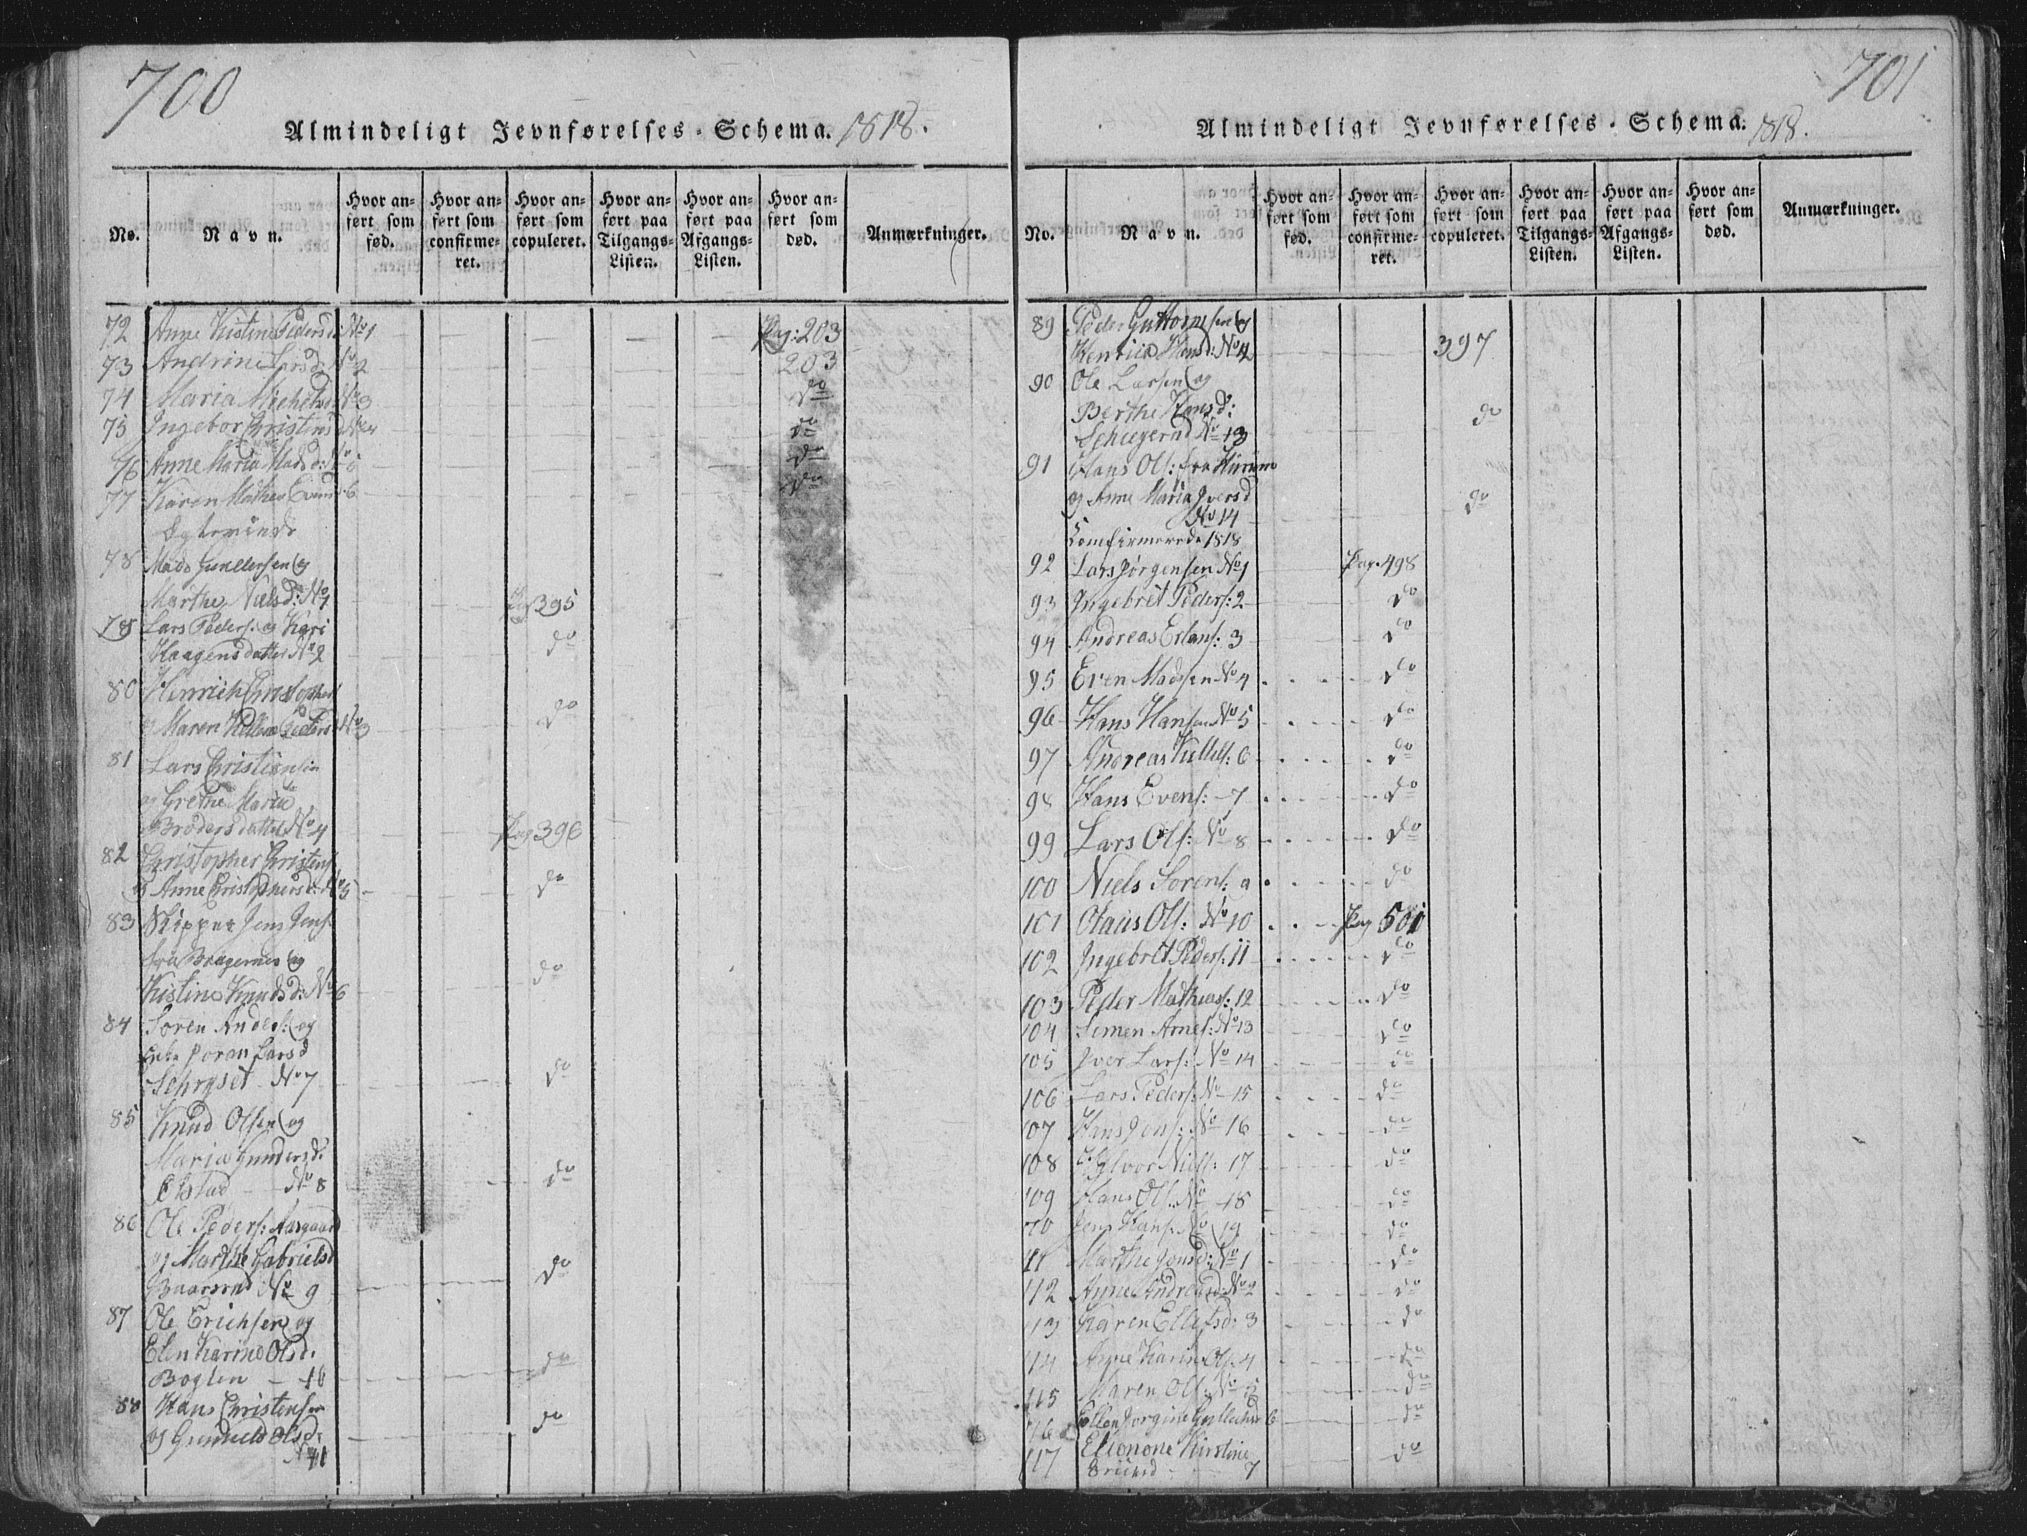 700
Almindeligt Jevnførelses-Schema. 1818.
No.
Navn.
Hvor anført som fød.
Hvor anført som confirmeret.
Hvor anført som copuleret.
Hvor anført paa Tilgangs-Listen.
Hvor anført paa Afgangs-Listen.
Hvor anført som død.
Anmærkninger.
72 Anne Kistine Pedersd No 1 Pag: 203
73 Andrine Larsd: No 2 203
74 Maria Michelsd No 3 do
75 Ingebor Christens No 4 do
76 Anne Maria Madsd: No do
77 Karen Mathea 6 do
Egteviede
78 Mads Gundersen og
Marthe Nielsd: No 1 Pag 395
78 Lars Peders: og Kari
Haagensdatter No 2 do
80 Henrich Christophers
og Maren Peders No 3 do
81 Lars Christiansen
og Grethe Maria
Brodersdatter No 4 Pag 396
82 Christopher Christens:
og Anne Christophersd: No 5 do
83 Skipper Jens Jens:
fra Bragernes og
Kistine Knudsd: No 6 do
84 Soren Anders: og
Enke Joran Larsd
No 7 do
85 Knud Olsen og
Maria Gundersd:
No 8 do
86 Ole Peders: Aasgaard
og Marthe Gabrielsd
Baarsrud No 9 do
87 Ole Erichsen og
Elen Karine Olsd:
Boglen - 10 do
88 Hans Christensen
og Olsd: do
No 11
701
Almindeligt Jevnførelses-Schema. 1818.
No.
Navn.
Hvor anført som fød.
Hvor anført som confirmeret.
Hvor anført som copuleret.
Hvor anført paa Tilgangs-Listen.
Hvor anført paa Afgangs-Listen.
Hvor anført som død.
Anmærkninger.
89 Peder Guttormsen og
Hansd: No 12 397
90 Ole Larsen og
Berthe Hansd: do
No 13
91 Hans Ols: fra Hurum
og Anne Maria Iversd do
No 14
Confirmerede 1818
92 Lars Jørgensen No 1 Pag. 498
93 Ingebret Peders: 2 do
94 Andreas Erlans: 3 do
95 Even Madsen No 4 do
96 Hans Hansen No 5 do
97 Andreas Kittels: 6 do
98 Hans Evens: - 7 do
99 Lars Ols: No 8 do
100 Niels Sorens: 9 do
101 Olaus Ols: No 10 Pag 501
102 Ingebret Peders: 11 do
103 Peder Mathias: 12 do
104 Simen Arnes: No 13 do
105 Iver Lars: No 14 do
106 Lars Peders: No 15 do
107 Hans Jons: No 16 do
108 Niels: 17 do
109 Hans Ols: No 18 do
70 Jens Hans: No 19 do
11 Marthe Jonsd: No 1 do
112 Anne Andreasd: No 2 do
113 Karen Ellefsd: 3 do
114 Anne Karine Ols: 4 do
115 Maren Ols: No 5 do
116 Ellen Jorgine 6 do
117 Elionone Kirstine do
7